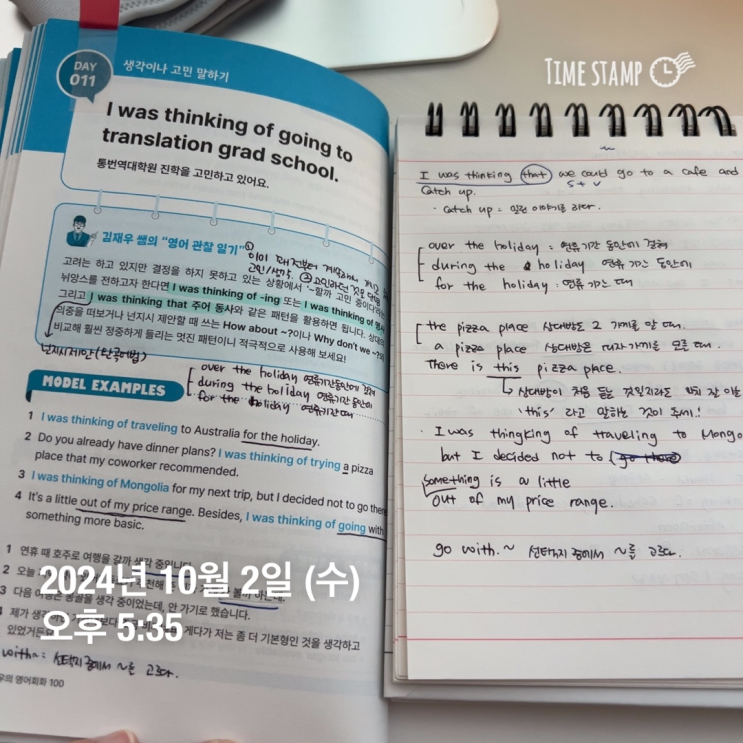 TIME STAMP
DAY
011
생각이나 고민 말하기
I was thinking of going to
translation grad school.
통번역대학원 진학을 고민하고 있어요.
김재우 쌤의 "영어 관찰 일기"
고려는 하고 있지만 결정을 하지 못하고 있는 상황에서 '~할까 고민 중이다'라는
뉘앙스를 전하고자 한다면 I was thinking of -ing 또는 I was thinking of 명사
그리고 I was thinking that 주어 동사와 같은 패턴을 활용하면 됩니다. 상대의
의중을 떠보거나 넌지시 제안할 때 쓰는 How about ~?이나 Why don't we ~?와
비교해 훨씬 정중하게 들리는 멋진 패턴이니 적극적으로 사용해 보세요!
넌지시 제안
over the holiday 연휴기간동안에 걸쳐
during the holiday 연휴기간 동안에
for the holiday 연휴기간 때
MODEL EXAMPLES
1 I was thinking of traveling to Australia for the holiday.
2 Do you already have dinner plans? I was thinking of trying a pizza
place that my coworker recommended.
3 I was thinking of Mongolia for my next trip, but I decided not to go there
4 It's a little out of my price range. Besides, I was thinking of going with
something more basic.
1 연휴 때 호주로 여행을 갈까 생각 중입니다.
2 오늘
3 다음 여행은 몽골을 생각 중이었는데, 안 가기로 했습니다.
4 제가 생각 게다가 저는 좀 더 기본형인 것을 생각하고
있었거든요
with~: 선택지 중에서 ~를 고르다.
우의 영어회화 100
2024년 10월 2일 (수)
오후 5:35
I was thinking that we could go to a cafe and
S + V
catch up.
· catch up = 밀린 이야기를 하다.
over the holiday : 연휴기간 동안에 걸쳐
during the holiday 연휴기간 동안에
for the holiday : 연휴 기간 때
the pizza place 상대방도 그 가게를 알 때.
a pizza place 상대방은 피자가게를 모를 때.
There is this pizza place.
↳ 상대방이 처음 듣는 것일지라도
'this' 라고 말하는 것이
· I was thingking of traveling to Mongo
but I decided not to
something is a little
out of my price range.
go with.~ 선택지 중에서 ~를 고르다.